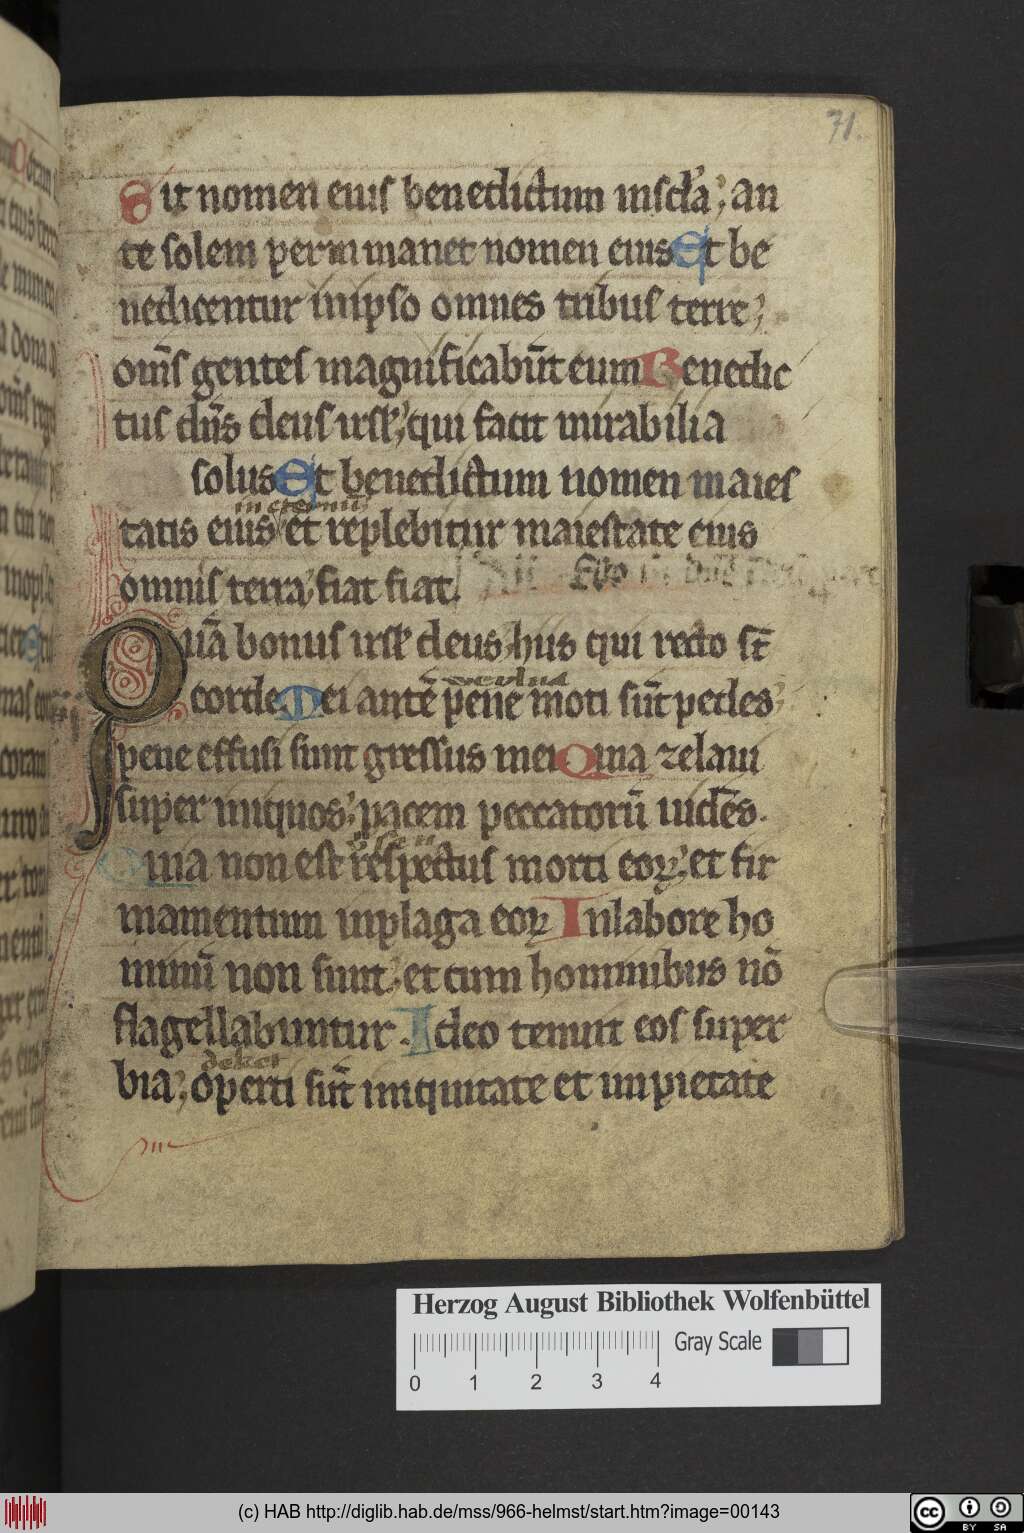 71.
Sit nomen eius benedictum inscła; an
te solem perm manet nomen eius Et be
nedicentur inipso omnes tribus terre;
om̄s gentes magnificabūt eum Benedic
tus dn̄s deus isrł; qui facit mirabilia
solus Et benedictum nomen maies
in eternū
tatis eius et replebitur maiestate eius
omnis terra; fiat fiat.
Quā bonus isrł deus; hiis qui recto st̄
oculus
corde Mei antē pene moti sūt pedes;
pene effusi sunt gressus mei Quia zelaui
super iniquos; pacem peccatorū uidēs.
Quia non est respectus morti eoꝝ; et fir
mamentum inplaga eoꝝ Inlabore ho
minū non sunt; et cum hominibus nō
flagellabuntur. Ideo tenuit eos super
deket
bia; operti sūt iniquitate et inpietate
Herzog August Bibliothek Wolfenbüttel
Gray Scale
0 1 2 3 4
(c) HAB http://diglib.hab.de/mss/966-helmst/start.htm?image=00143
cc BY SA